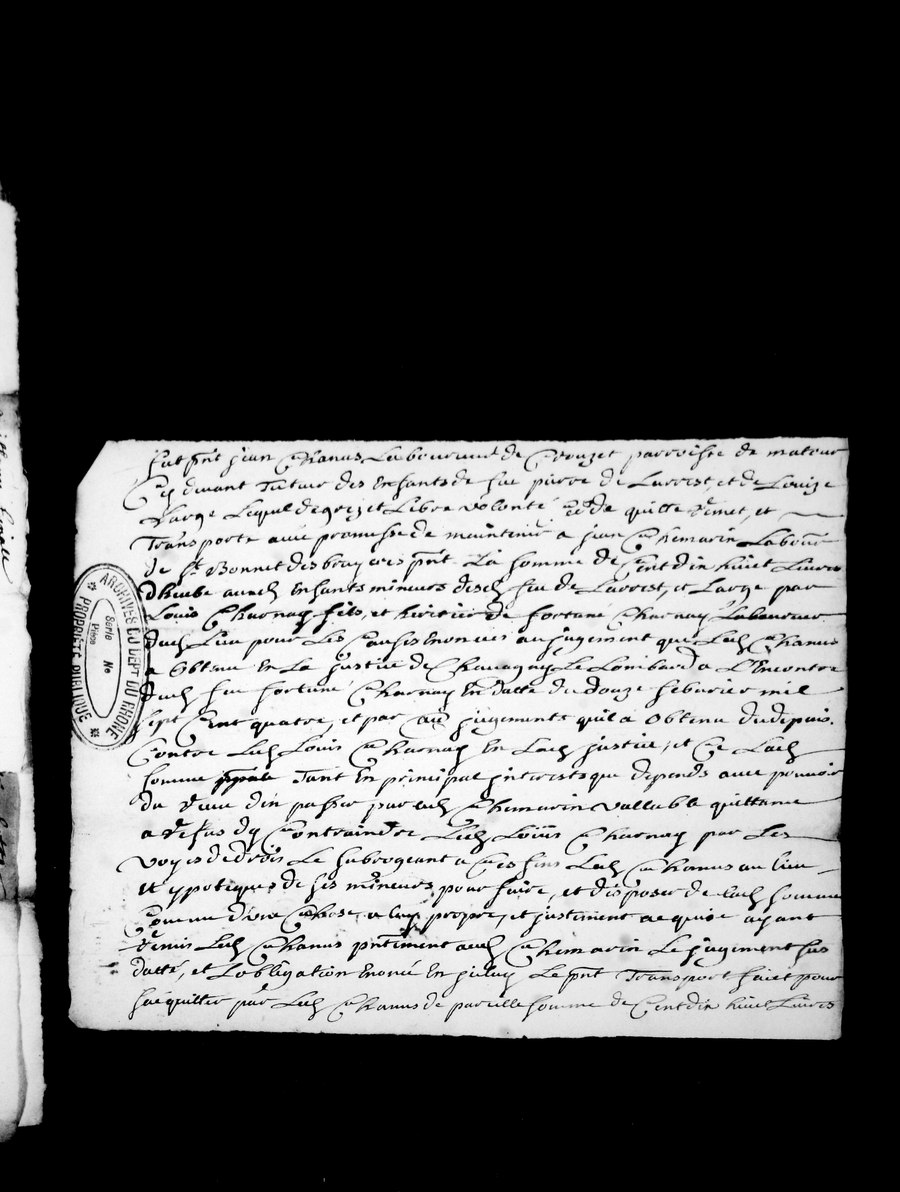 fut pnt jean Chanus Laboureur de Crouzet parroisse de mateur
Cy devant Tuteur des Enfants de feu pierre de Lavrest, et de Louize
Large Lequel de gré et Libre volonté Cede quitte Remet, et
Transporte avec promesse de maintenir a jean Chemarin Labour
de St Bonnet des bruyeres pnt La somme de Cent dix huict Livres
dheube ausd Enfants mineurs desd feu de Lavrest, et Large par
Louis Charnay fils, et heritier de fortuné Charnay Laboureur
dud Lieu pour Les causes Enoncées au jugement que Led Chanus
a Obtenu En La justice de Chavagny Le Lombard a L'Encontre
dud feu fortuné Charnay En datte du douze febvrier mil
sept Cent quatre, et par au jugements quil a Obtenu du depuis
Contre Led Louis Charnay En Lad justice, et Ce Lad
somme Tant En principal jnterests que depends avec pouvoir
du Receu d'en passer par led Chemarin vallable quittance
a Refus dy Contraindre Led Loüis Charnay par Les
voyes de drois Le subrogeant a Ces fins Led Chanus au lieu
et ypoteques de ses mineurs pour faire, et disposer de lad somme
Comme d'une Chose a luy propre, et justement acquise ayant
Remis Led Chanus pntement aud Chemarin Le jugement sus
datté, et Lobligation Enoncé En jceluy Le pnt Transport faict pour
sacquitter par Led Chanus de pareille somme de Cent dix huict Livres
ARCHIVES DU DÉPT DU RHONE
PROPRIÉTÉ PUBLIQUE
Série
No
Pièce